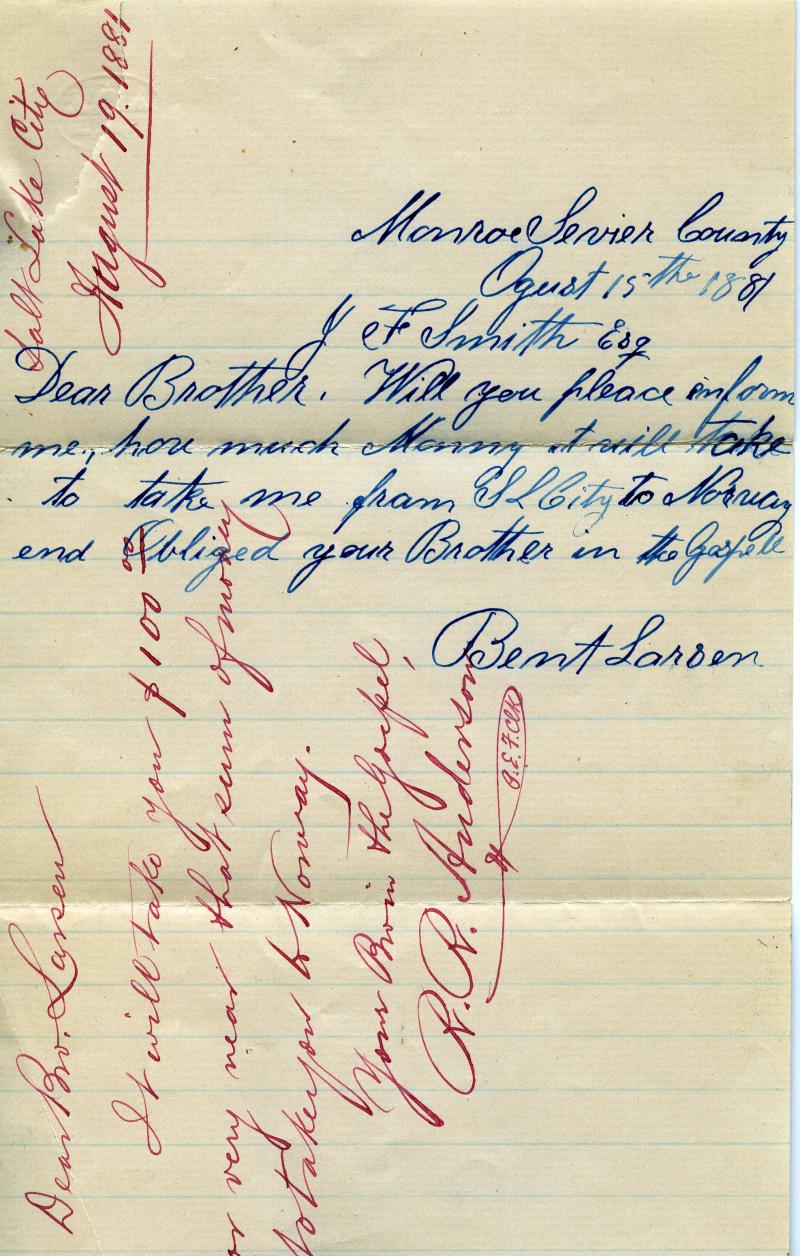 Monroe Sevier County
Ogust 15th 1881
J F Smith Esq
Dear Brother. Will you pleace inform
me, how much Monny it will take
to take me fram S L City to Norway
end Obliged your Brother in the Gospell
Bent Larsen
Salt Lake City
August 19. 1881
Dear Bro. Larsen
It will take you $100 00
or very near that sum of money
to take you to Norway.
Your Bro in the Gospel,
R. R. Anderson
P.E.F. Clk